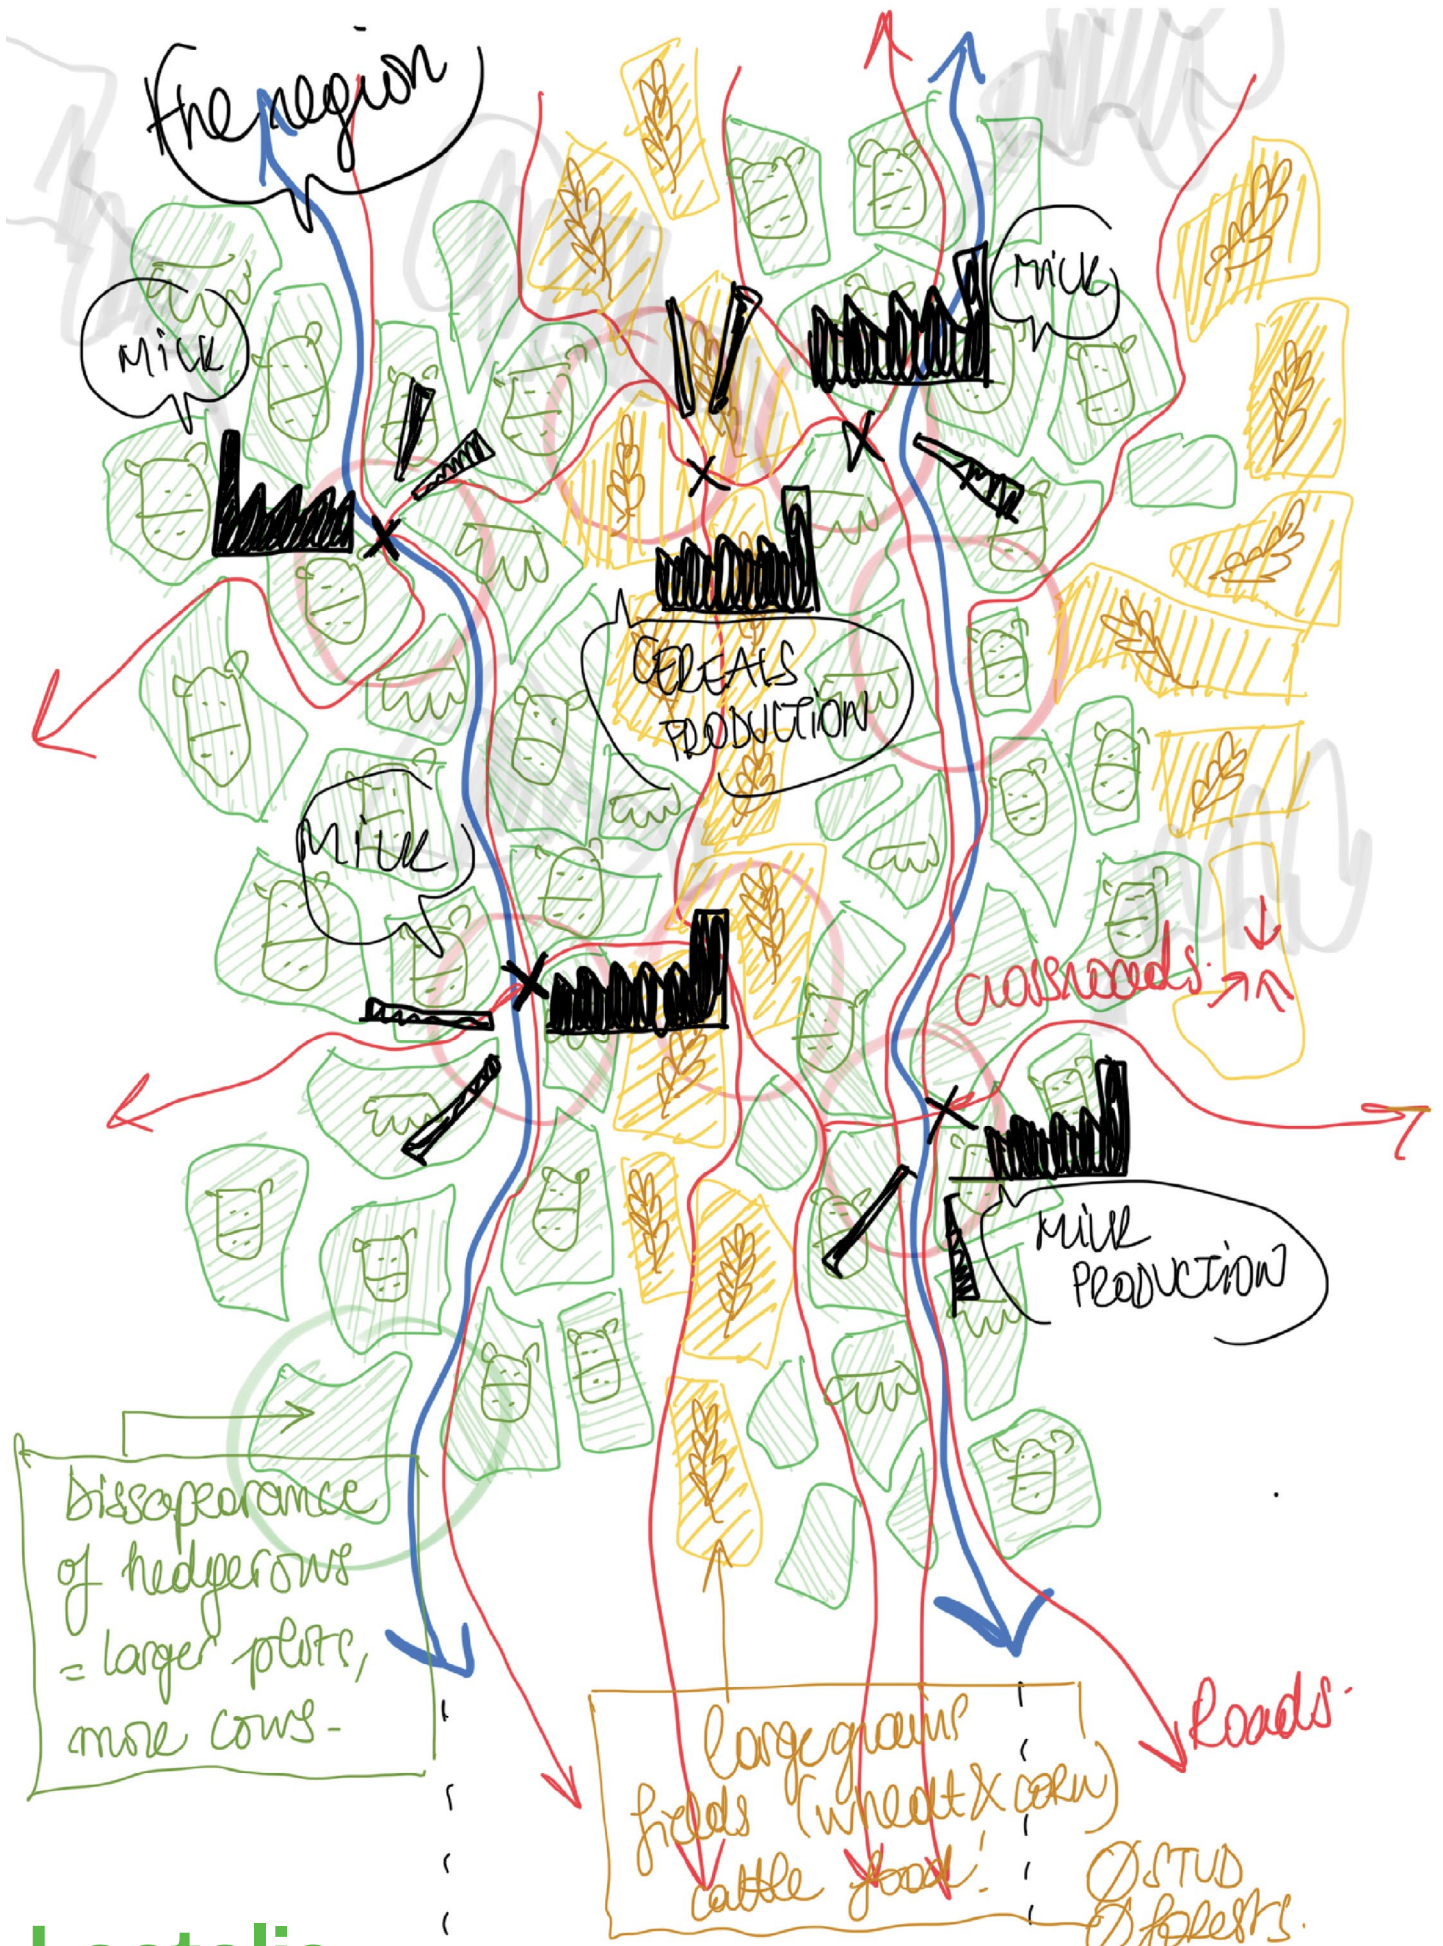 the region
MILK
MILK
CEREALS
PRODUCTION
MILK
Crossroads.
MILK
PRODUCTION
Dissapearance
of hedgerows
= larger plots,
more cows -
Roads.
large grains
fields (wheat & CORN)
cattle food!
Ø STUD
Ø forests.